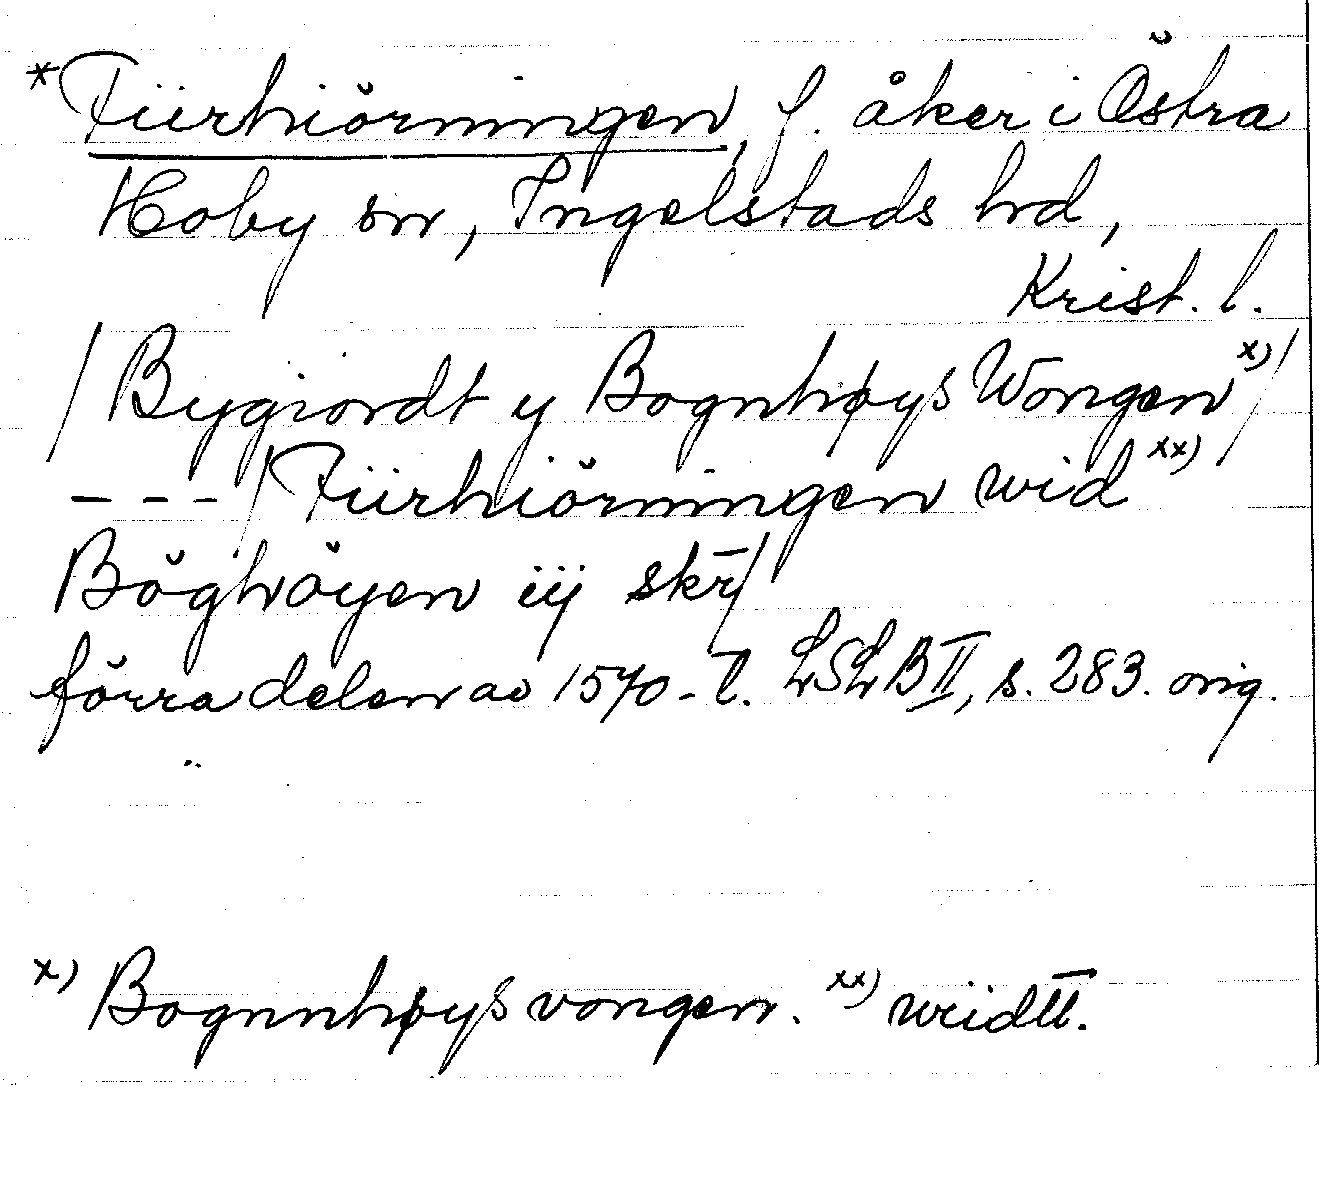 *Fiirhiörningen, f. åker i Östra
Hoby sn, Ingelstads hrd,
Krist. l.
/Bygiordt y Bognhøys Wongen x)/
- - - /Fiirhiörningen wid xx)
Böghöyen iij skr̄/
förra delen av 1570-t. LSLB II, s. 283. orig.
x) Bognnhøys vongen. xx) wiidtt.